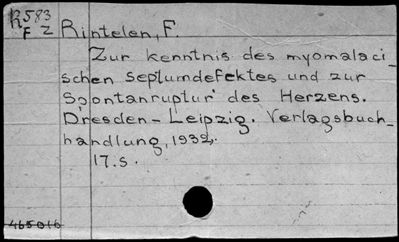 R583
FZ
Rintelen, F.
Zur kenntnis des myomalaci-
schen septumdefektes und zur
Spontanruptur des Herzens.
Dresden - Leipzig. Verlagsbuch-
handlung, 1932.
17.s.
465016